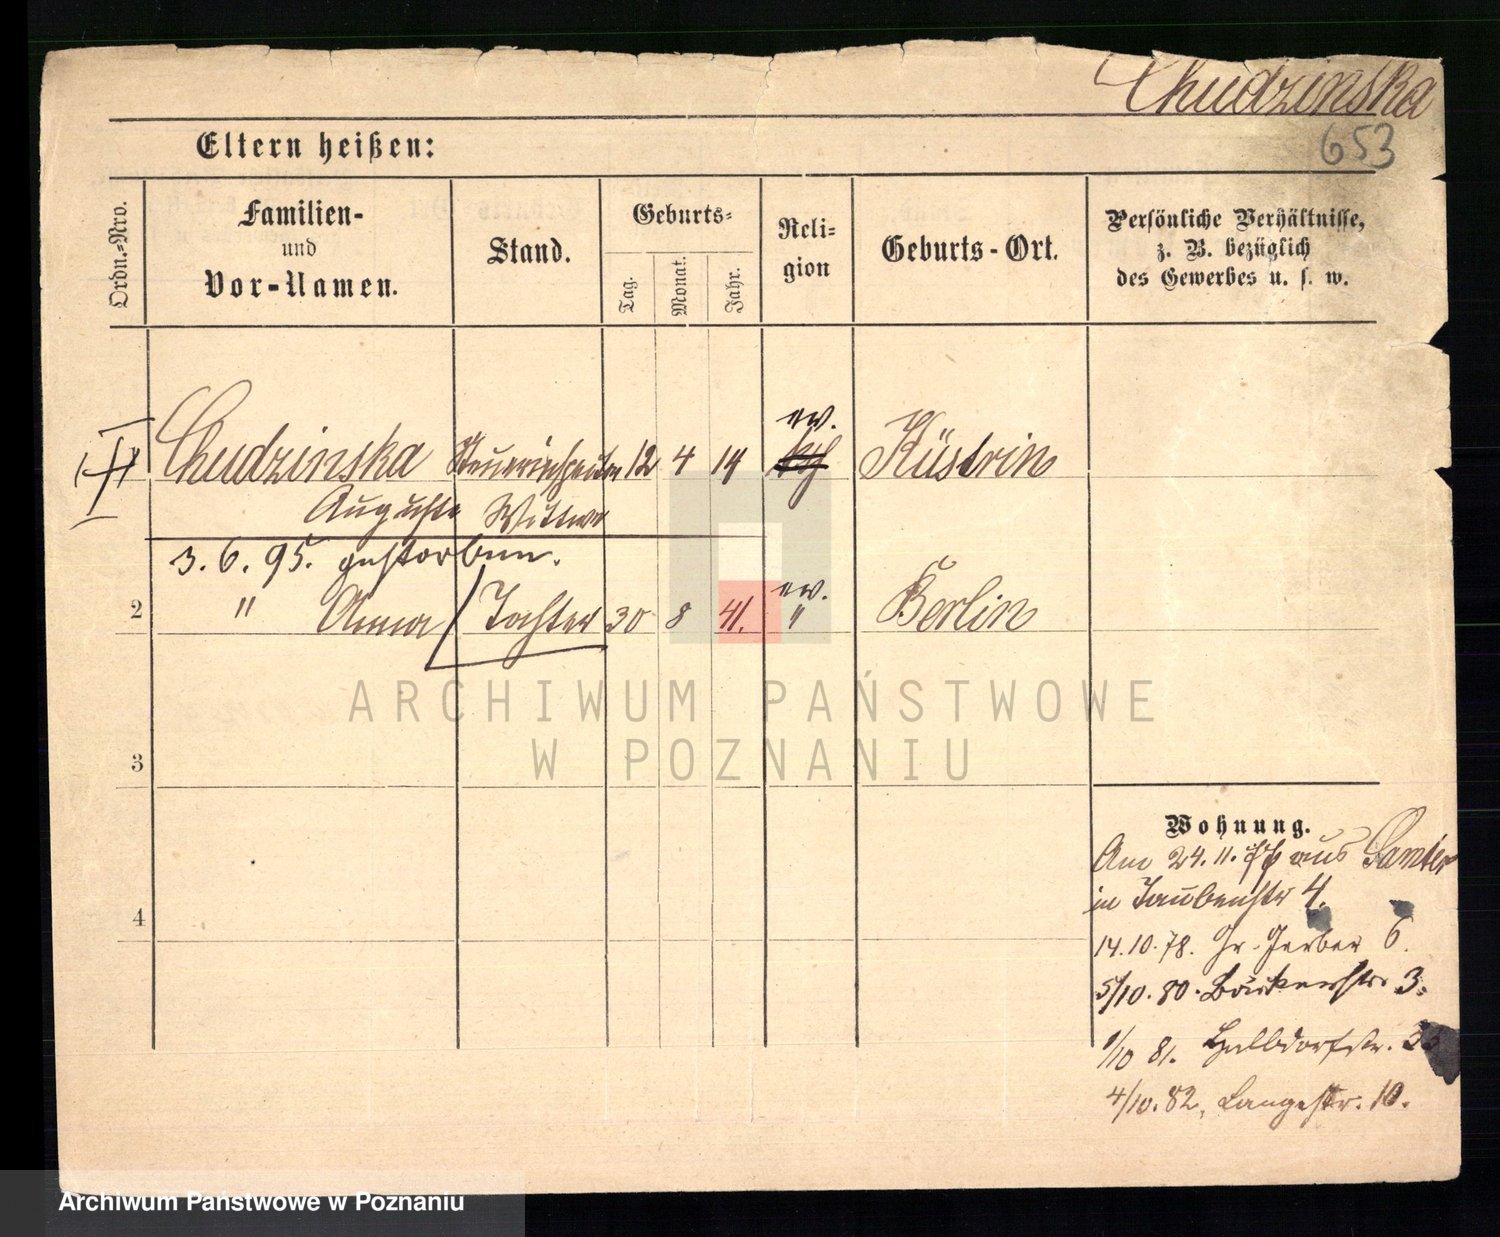 Chudzinska
653
Eltern heißen:
Ordn.-Nro.
Familien-
und
Vor-Namen.
Stand.
Geburts-
Tag.
Monat.
Jahr.
Reli-
gion
Geburts-Ort.
Persönliche Verhältnisse,
z. B. bezüglich
des Gewerbes u. s. w.
ev.
Chudzinska 12 4 14 Küstrin
Auguste Wittwe
3. 6. 95. gestorben.
ev.
2 " Anna Tochter 30 8 41. " Berlin
3
4
Wohnung.
Am 24. 11. 77 aus Samter
in Taubenstr 4.
14.10.78. Gr. Gerber 6.
5/10. 80. Bäckerstr. 3.
1/10 81. Halbdorfstr. 33
4/10. 82. Langestr. 10.
ARCHIWUM PAŃSTWOWE
W POZNANIU
Archiwum Państwowe w Poznaniu